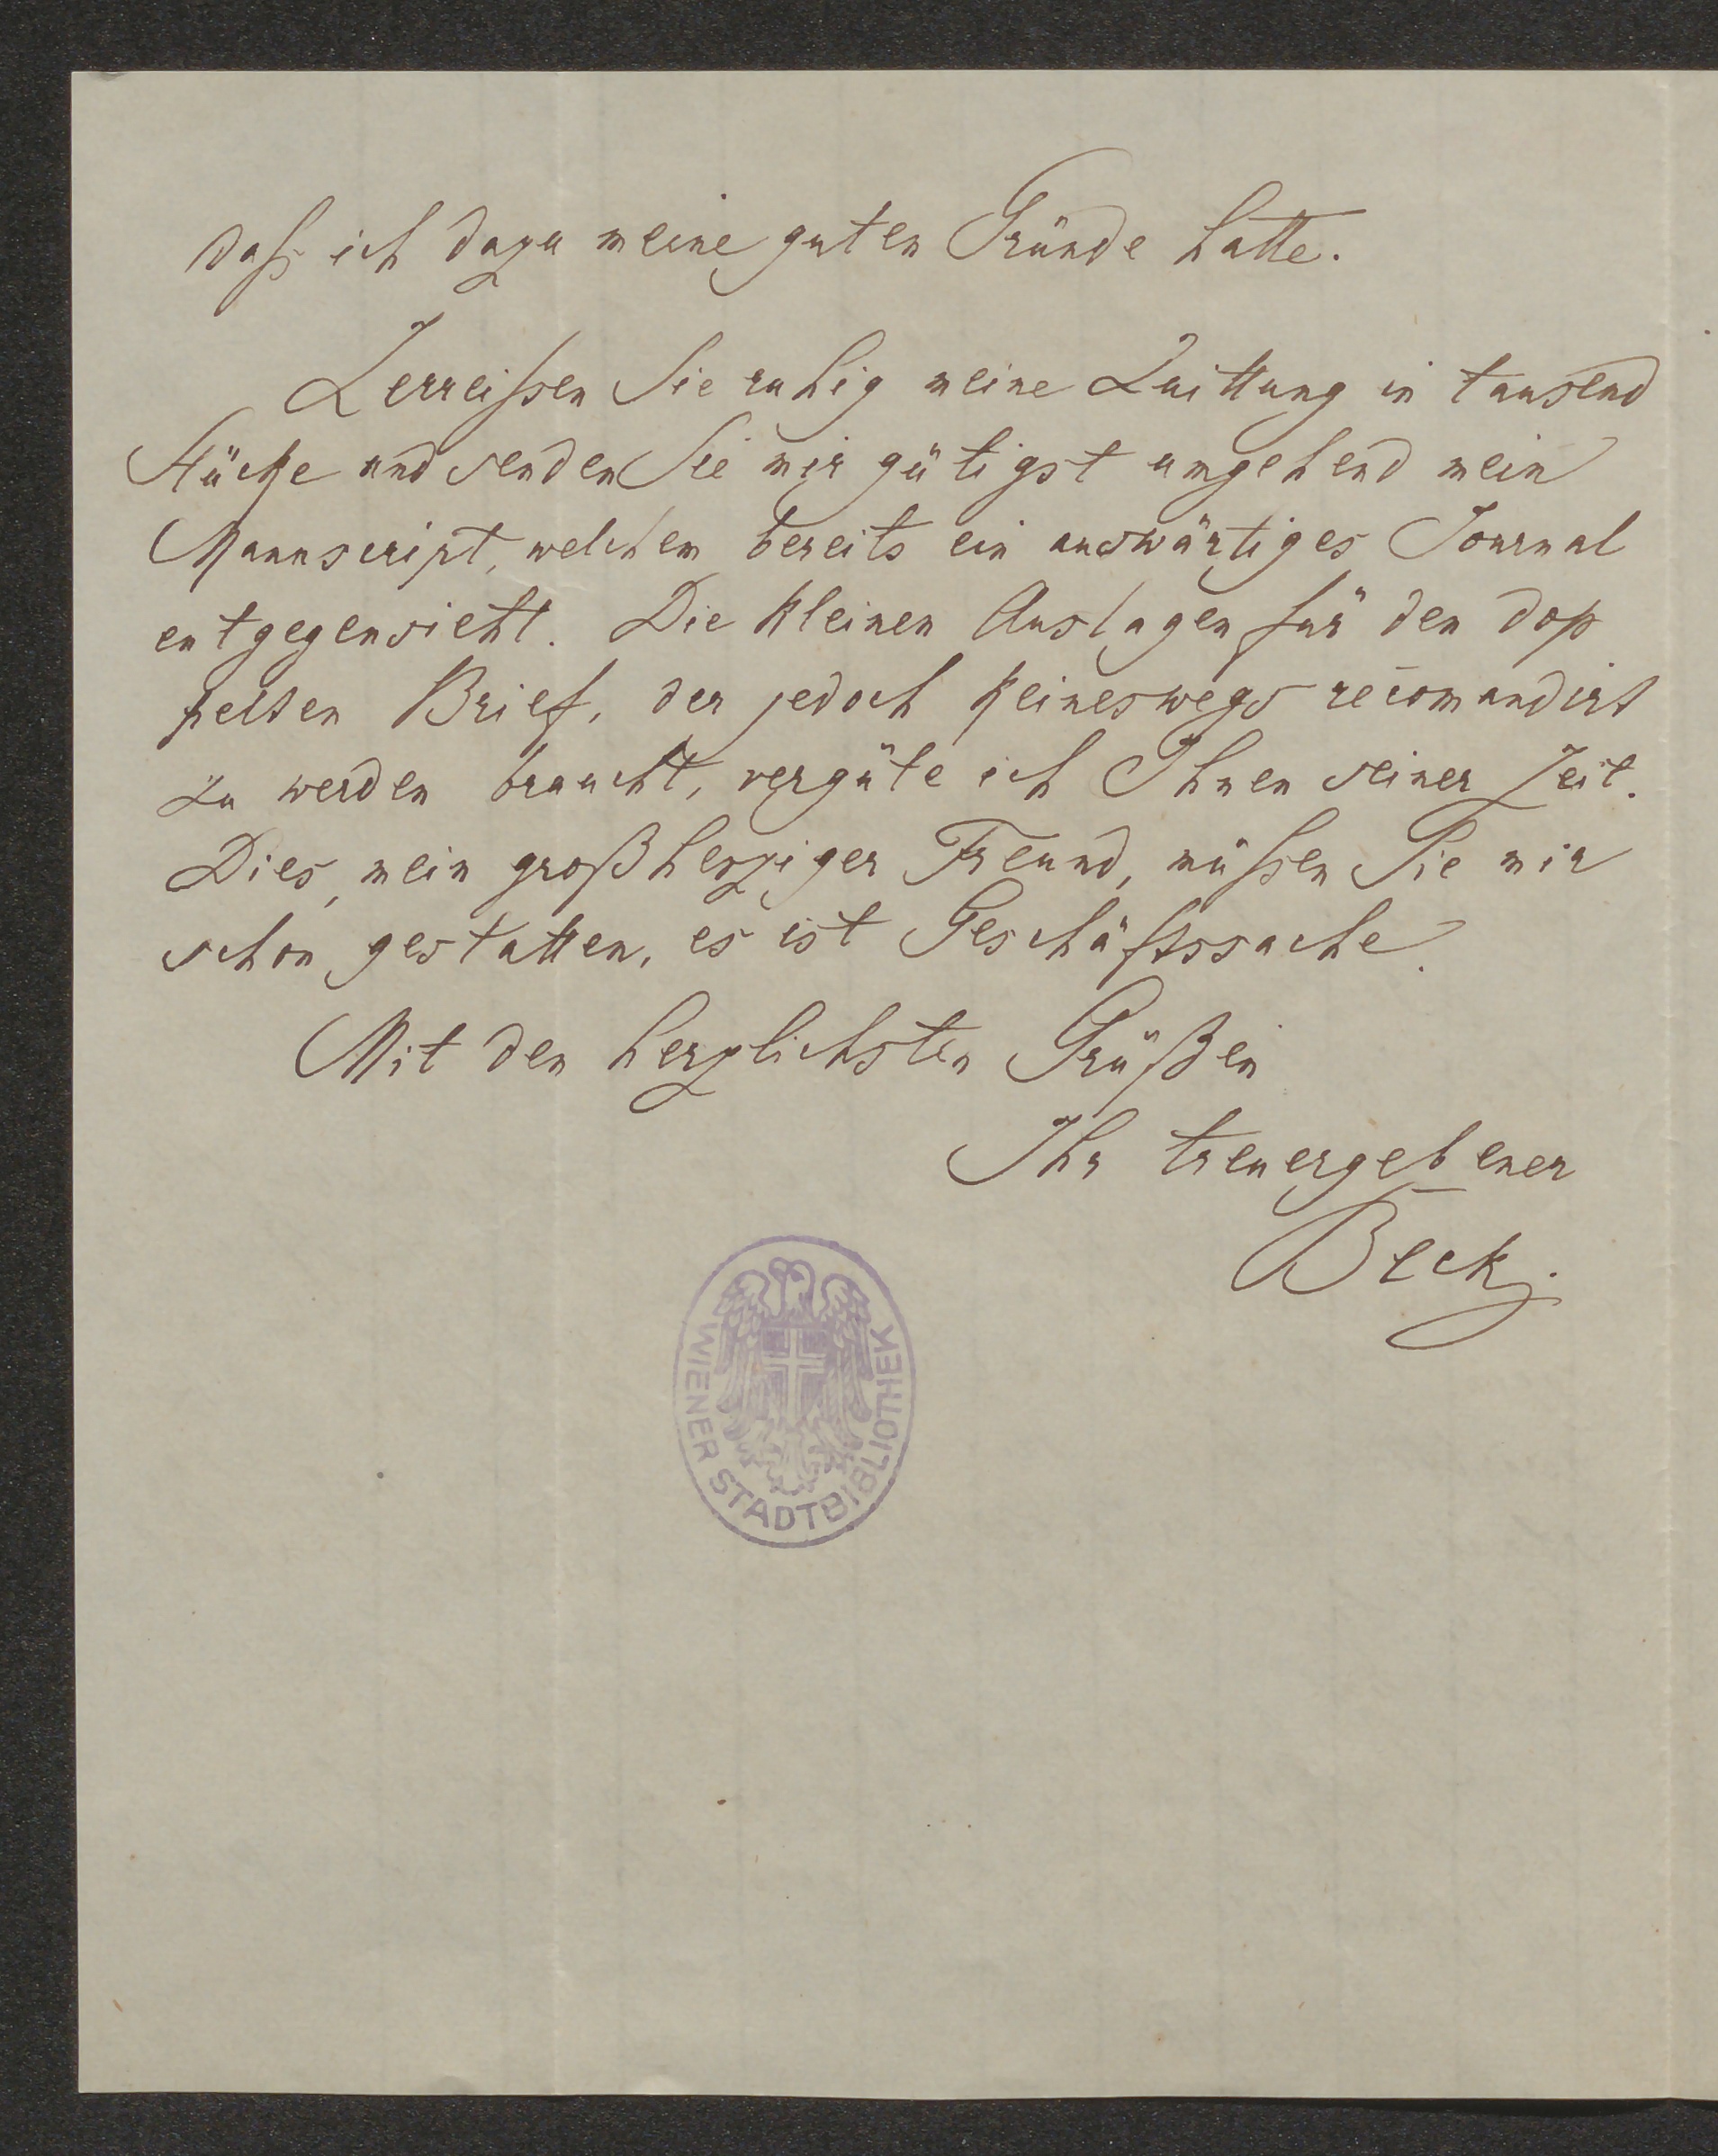 daß ich dazu meine guten Gründe hatte.
Zerreißen Sie ruhig meine Quittung in tausend
Stücke und senden Sie mir gütigst umgehend mein
Manuscript, welchem bereits ein auswärtiges Journal
entgegensieht. Die kleinen Auslagen für den dop
pelten Brief, der jedoch keineswegs recom̄andirt
zu werden braucht, vergüte ich Ihnen seiner Zeit.
Dies, mein großherziger Freund, müßen Sie mir
schon gestatten, es ist Geschäftssache.
Mit den herzlichsten Grüßen
Ihr treuergebener
Beck.
WIENER STADTBIBLIOTHEK